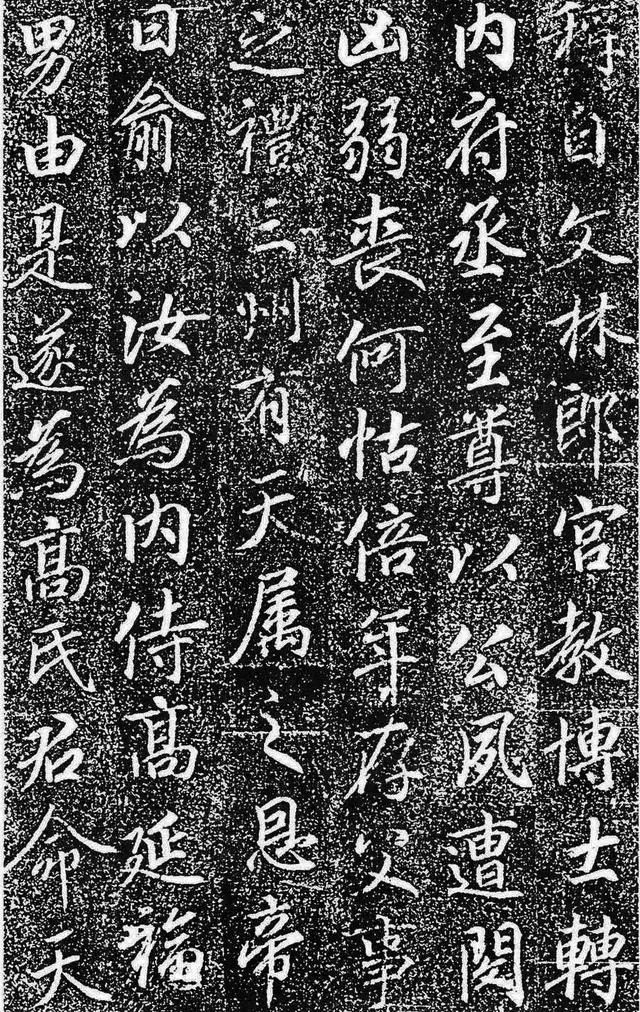 釋自文林郎宮教博士轉
内府丞至尊以公夙遭閔
凶弱喪何怙倍年存父事
之禮三州有天属之恩帝
曰俞以汝為内侍高延福
男由是遂為髙氏君命天